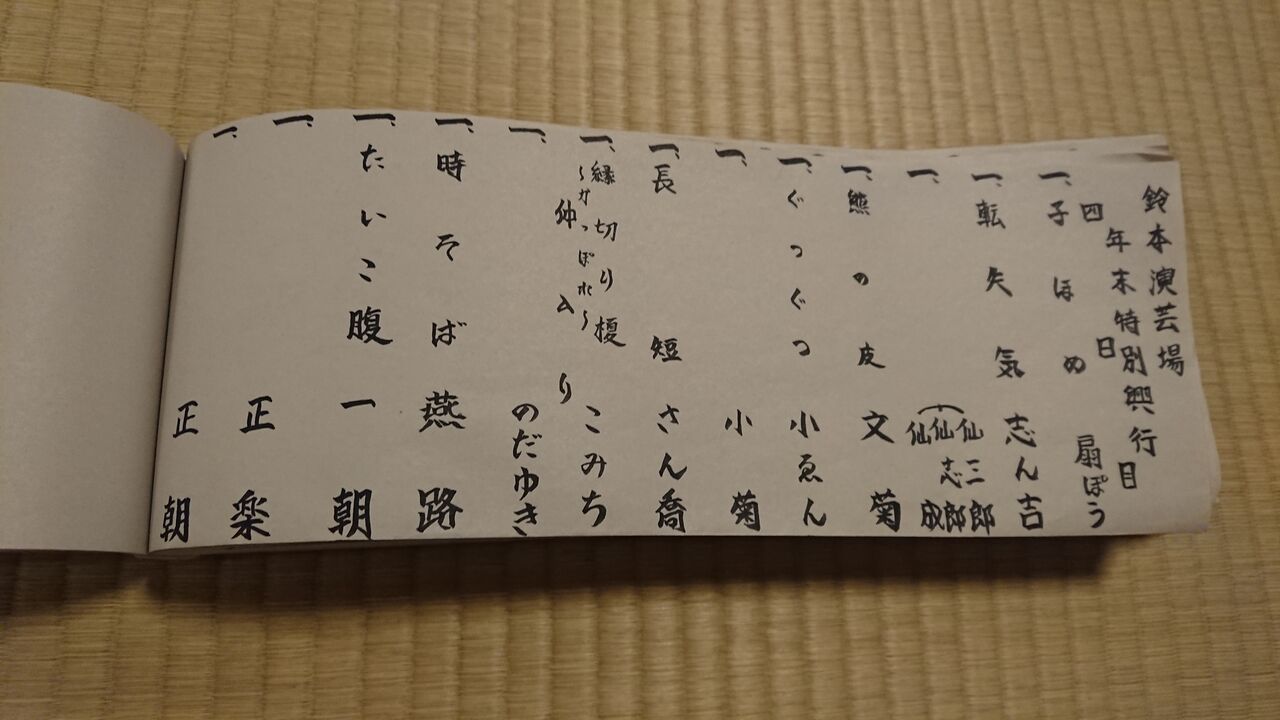 鈴本演芸場
年末特別興行
四日目
一、子ほめ 扇ぽう
一、転失気 志ん吉
一、仙三郎 仙志郎 仙成
一、熊の皮 文菊
一、ぐつぐつ 小ゑん
一、小菊
一、長短 さん喬
一、縁切り榎 〜かっぽれ〜 こみち
仲入り
一、のだゆき
一、時そば 燕路
一、たいこ腹 一朝
一、正楽
一、正朝